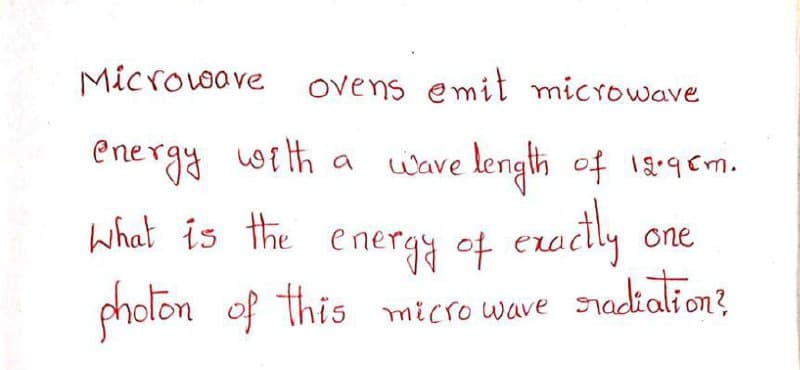 Microwave ovens emit microwave
energy with a wave length of 12.9cm.
What is the energy of exactly one
photon of this micro wave radiation?